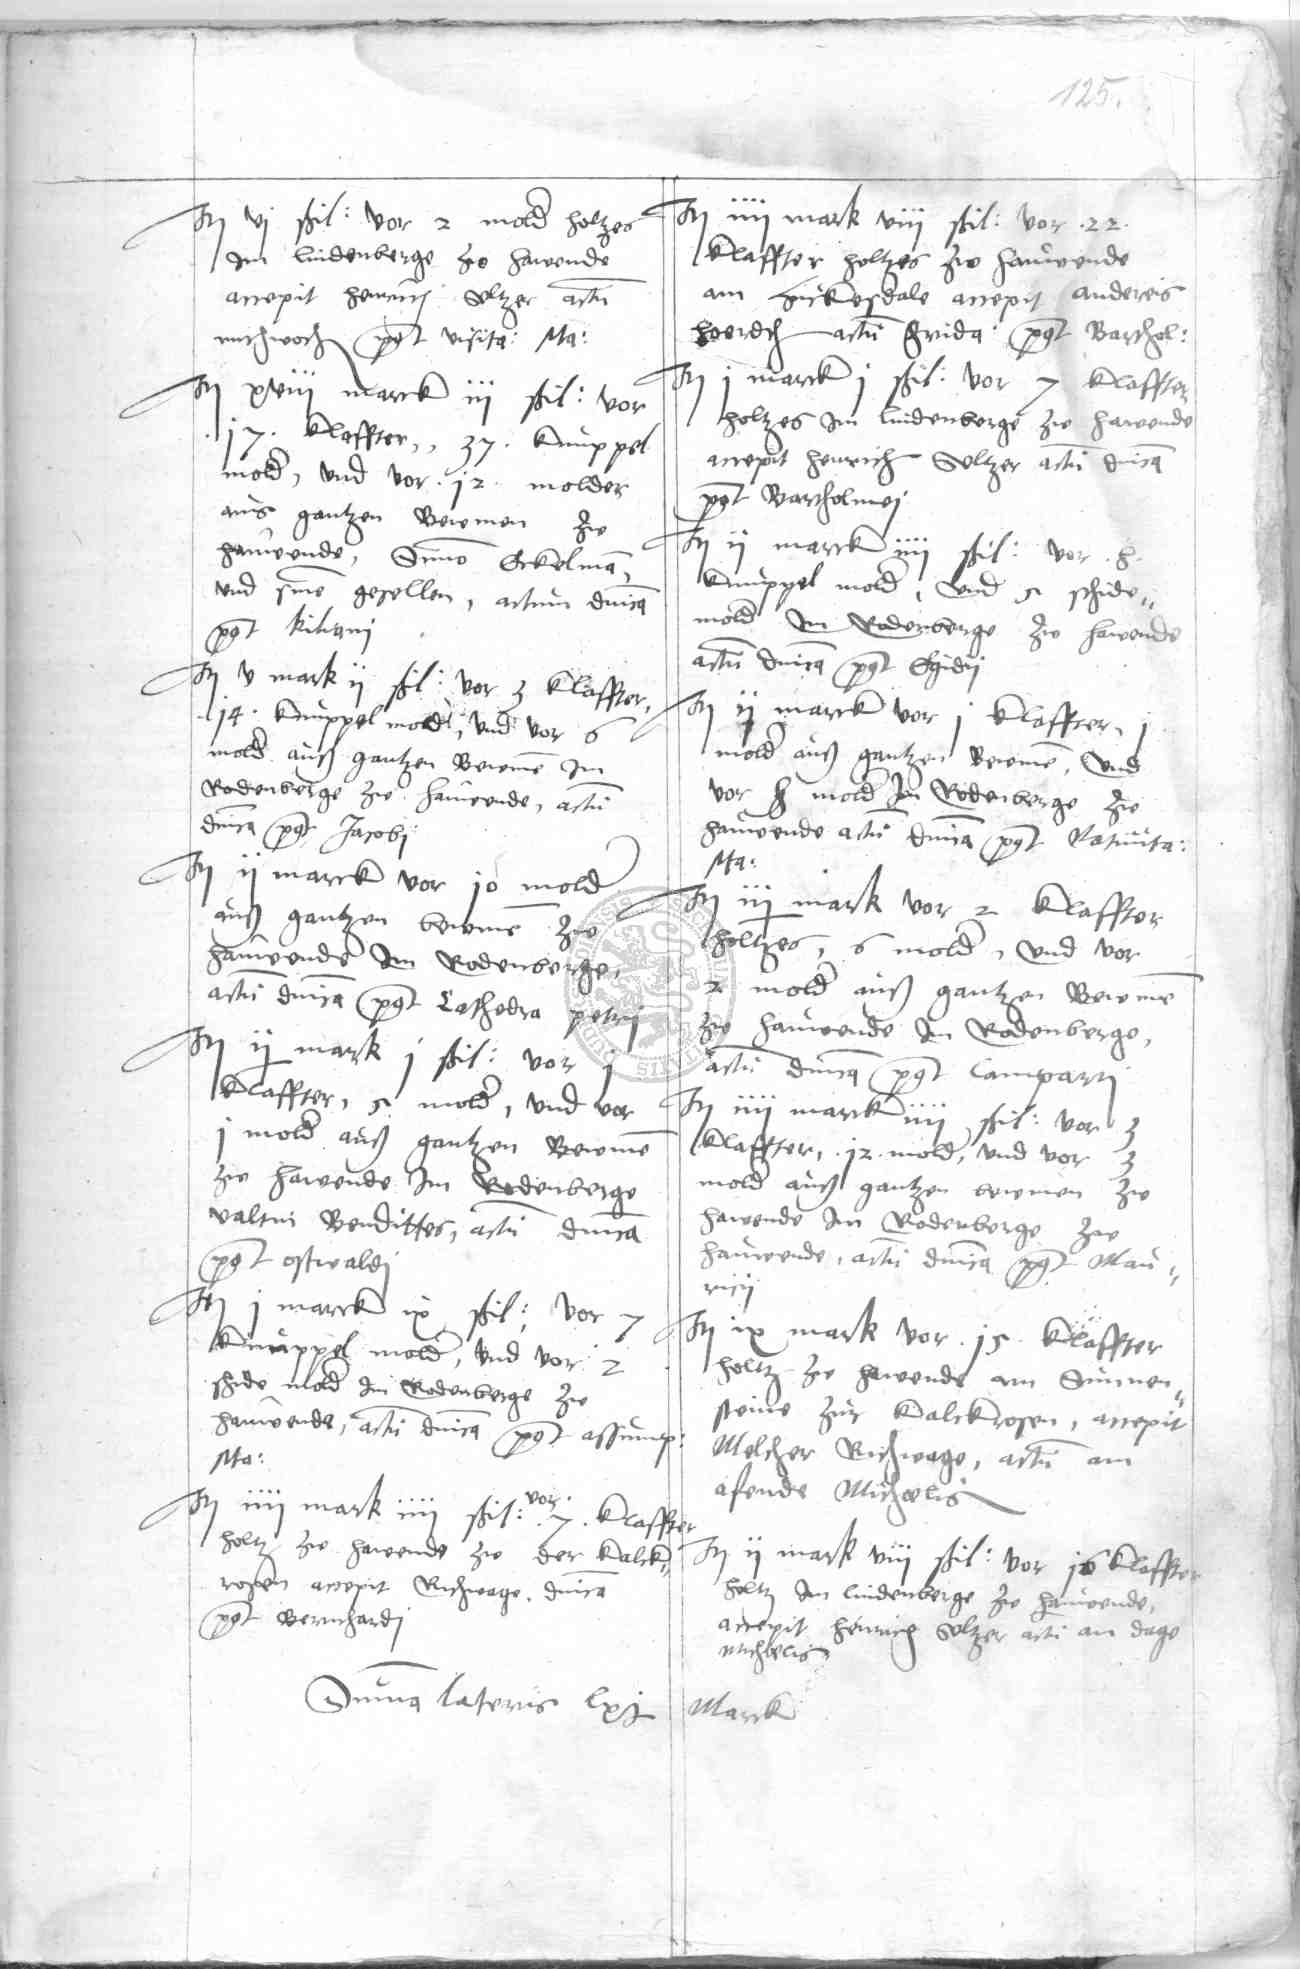 125.
It vj ßil: vor 2 mold holtzes
Im lindenberge zw hawende
accepit henrich Seltzer actu
mithwoch post visita: Ma:
It xviii marck iij ßil: vor
.17. klaffter, 37. knuppel
mold, vnd vor .12. molder
aus gantzen Bewmen zw
hauwende, Simo Eckelma,
vnd sine gesellen, actum dnica
post kiliani
It v mark ij ßil: vor 3 klaffter,
.14. knuppel mold, vnd vor 6
mold auß gantzen Bewme Im
Rodenberge zw hauwende, actu
dnica post Jacobi
It ij marck vor 10 mold
auß gantzen bewme zw
hauwende Im Rodenberge,
actu dnica post Cathedra petrij
It ij mark j ßil: vor j
klaffter, 5 mold, vnd vor
j mold auß gantzen Bewme
zw hawende Im Rodenberge
valtin Bendittes, actu dnica
post oswaldj
It j marck ix ßil: vor 7
knuppel mold, vnd vor 2
schide mold Im Rodenberge zw
hauwende, actu dnica post assump:
Ma:
It iiij mark iiij ßil: vor .7. klaffter
holtz zw hawende zw der kalck
rosen accepit Richwage, dnica
post Bernhardj
It iiij mark viii ßil: vor .22.
klaffter holtzes zw hauwende
am accepit andereis
actu frida post Barthol:
It j marck j ßil: vor 7 klaffter
holtzes Im lindenberge zw hawende
accepit henrich Seltzer actu dnica
post Bartholmej
It ij marck iiij ßil: vor
knuppel mold, vnd 5 schide„
mold Im Rodenberge zw hawende
actu dnica post Egidij
It ij marck vor j klaffter, j
mold auß gantzen Bewme, vnd
vor mold Im Rodenberge zw
hauwende actu dnica post Natiuita:
Ma:
It iij mark vor 2 klaffter
holtzes, 6 mold, vnd vor
2 mold auß gantzen Bewme
zw hauwende Im Rodenberge,
actu dnica post lampartj
It iiij marck iiij ßil: vor 3
klaffter, .12. mold, vnd vor 3
mold auß gantzen bewmen zw
hawende Im Rodenberge zw
hauwende, actu dnica post Mau„
ricij
It ix mark vor .15. klaffter
holtz zw hawende am Sunnen„
steine zur kalckrosen, accepit
Melcher Richwage, actu am
afende Michaelis
It ij mark viij ßil: vor 16 klaffter
holtz Im lindenberge zw hauwende,
accepit henrich Seltzer actu am dage
Michaelis
Suma lateris Marck